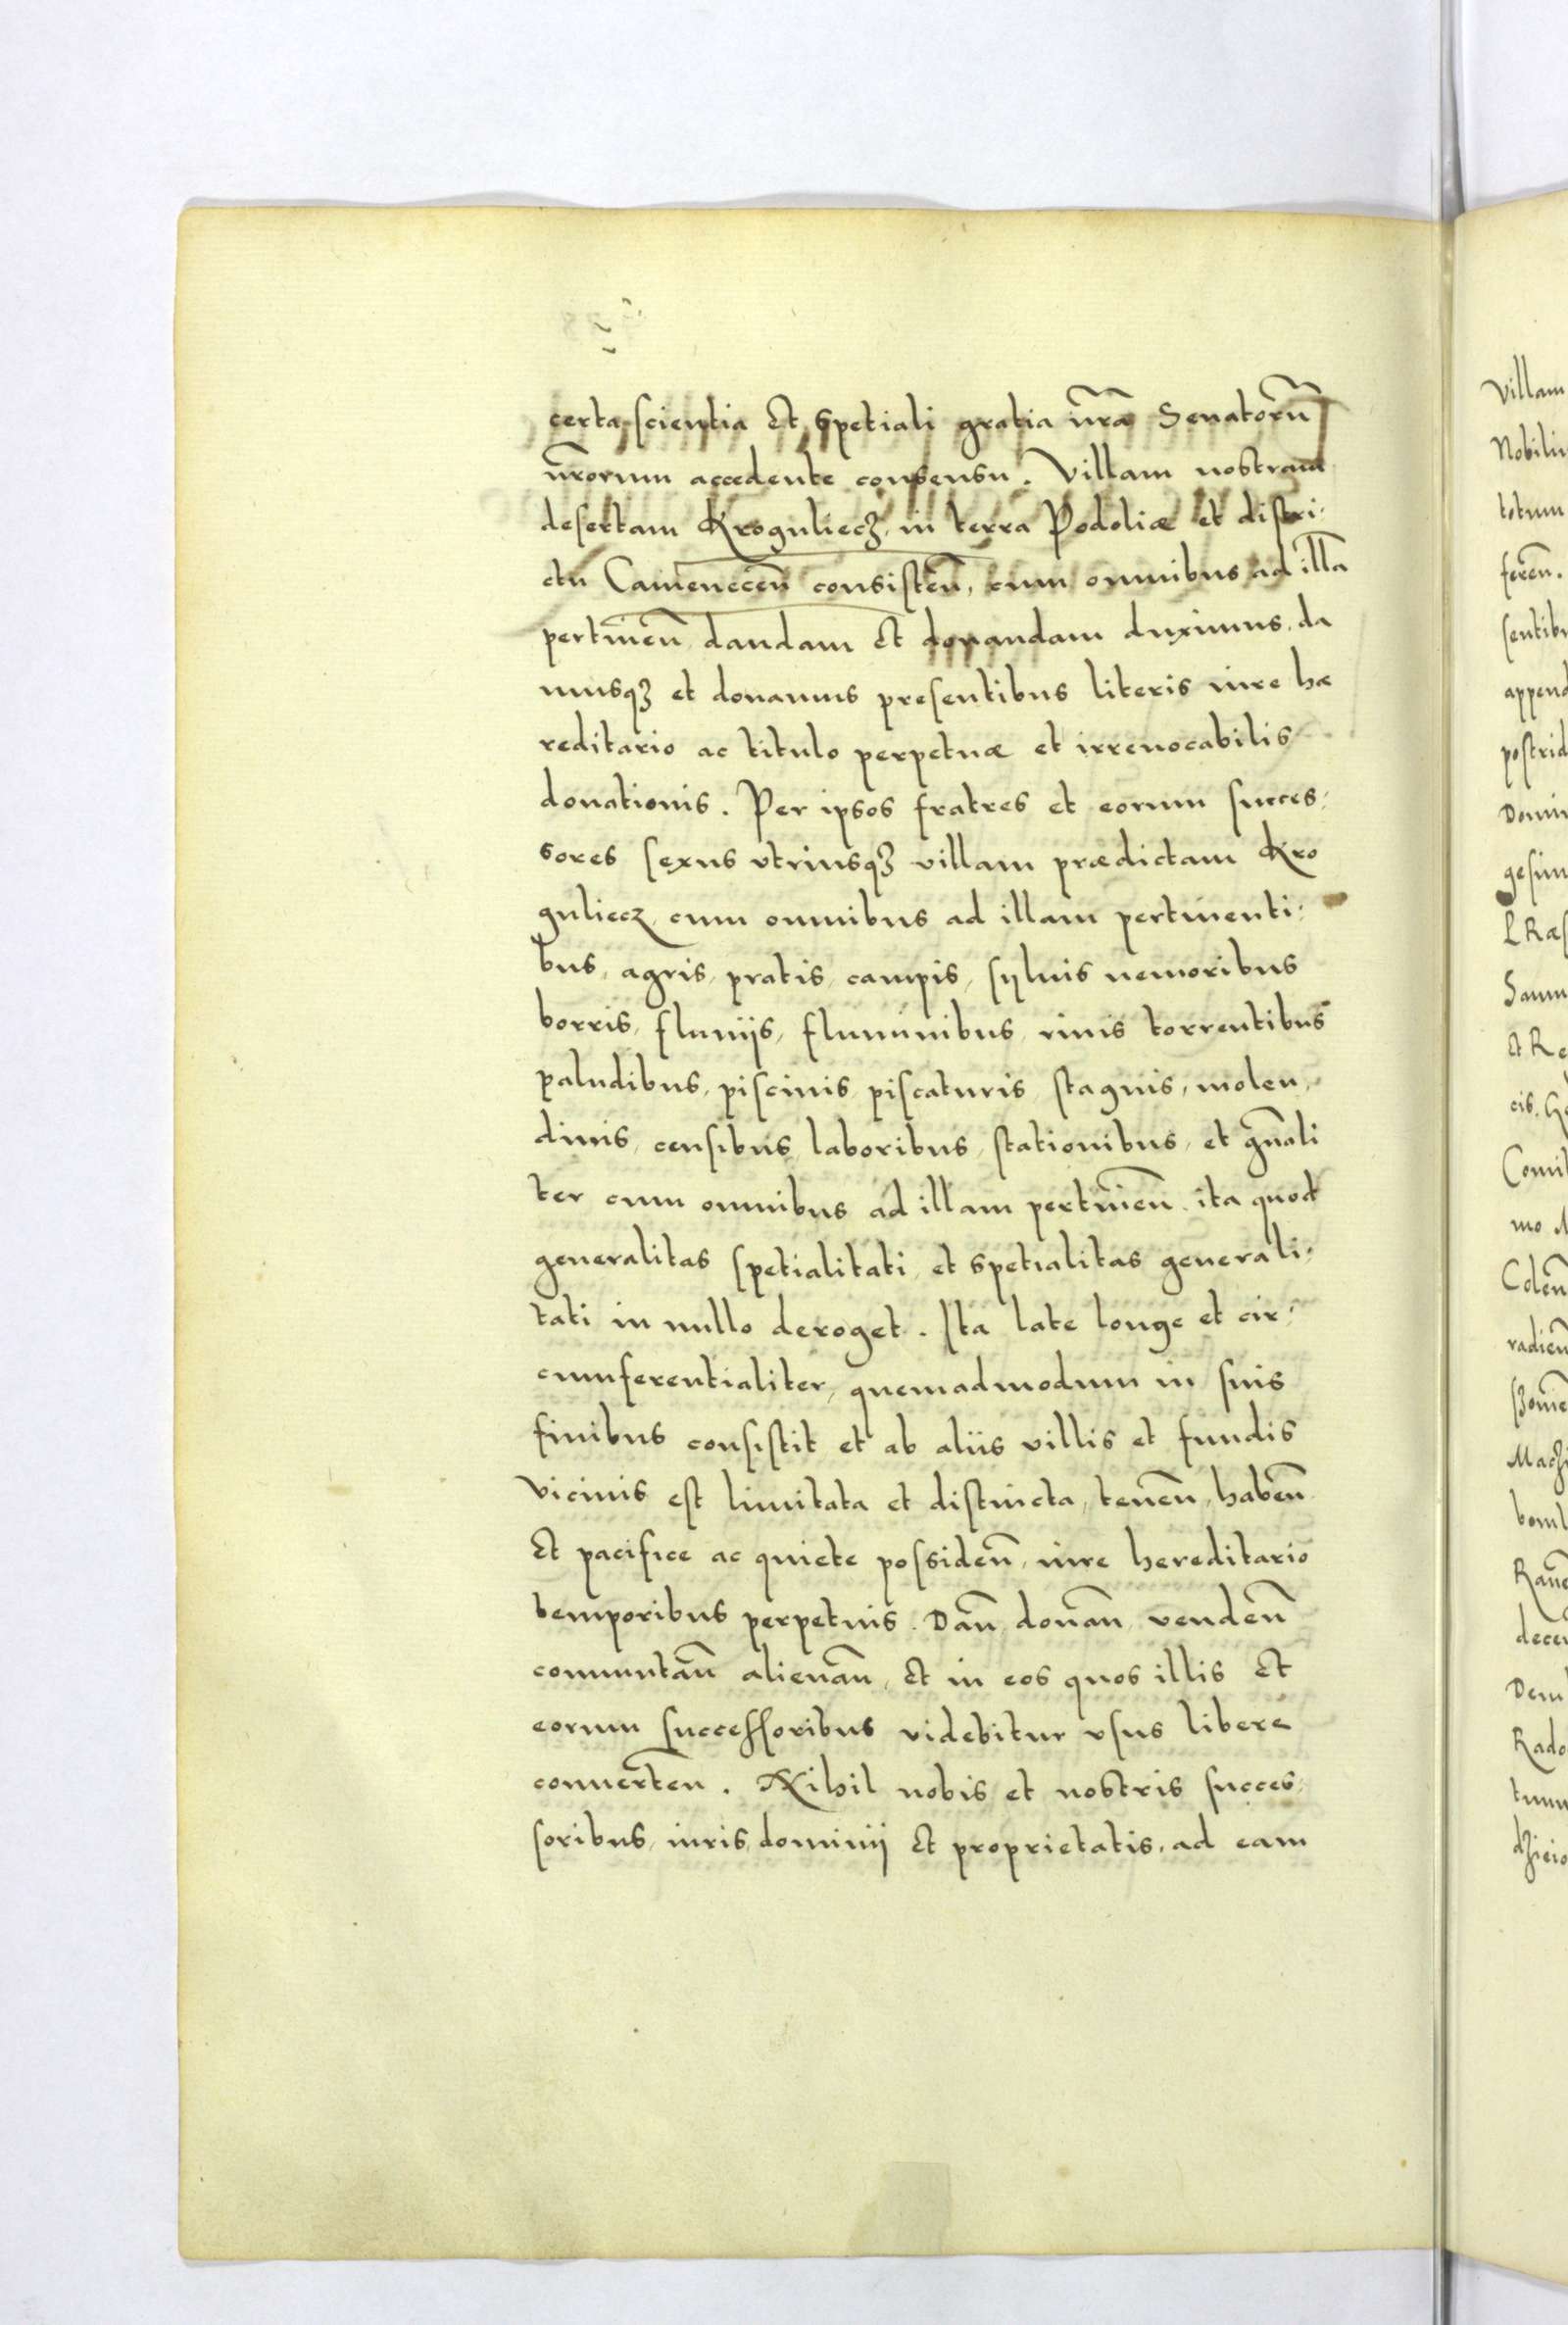 certa scientia et spetiali gratia nr̃a Senatorũ
nr̃orum accedente consensu. Villam nostram
desertam Kroguliecz, in terra Podoliæ et distri:
ctu Camenecen̄ consisten̄, cum omnibus ad illã
pertinen̄ dandam et donandam duximus, da
musqꝫ et donamus presentibus literis iure hæ
reditario ac titulo perpetuæ et irreuocabilis
donationis. Per ipsos fratres et eorum succes:
sores sexus vtriusqꝫ villam prædictam Kro
guliecz cum omnibus ad illam pertinenti:
bus, agris, pratis, campis, syluis nemoribus
borris, fluuijs, fluminibus, riuis torrentibus
paludibus, piscinis, piscaturis, stagnis, molen,
dinis, censibus, laboribus, stationibus, et gn̄ali
ter cum omnibus ad illam pertinen̄, ita quod
generalitas spetialitati, et spetialitas generali:
tati in nullo deroget. Ita late longe et cir:
cumferentialiter, quemadmodum in suis
finibus consistit et ab aliis villis et fundis
vicinis est limitata et distincta, tenen̄, haben̄
et pacifice ac quiete possiden̄, iure hereditario
temporibus perpetuis. Dan̄ donan̄, venden̄
commutan̄ alienan̄, et in eos quos illis et
eorum successoribus videbitur vsus libere
conuerten̄. Nihil nobis et nostris succes:
soribus, iuris, dominij et proprietatis, ad eam
Villam
totum
feren̄.